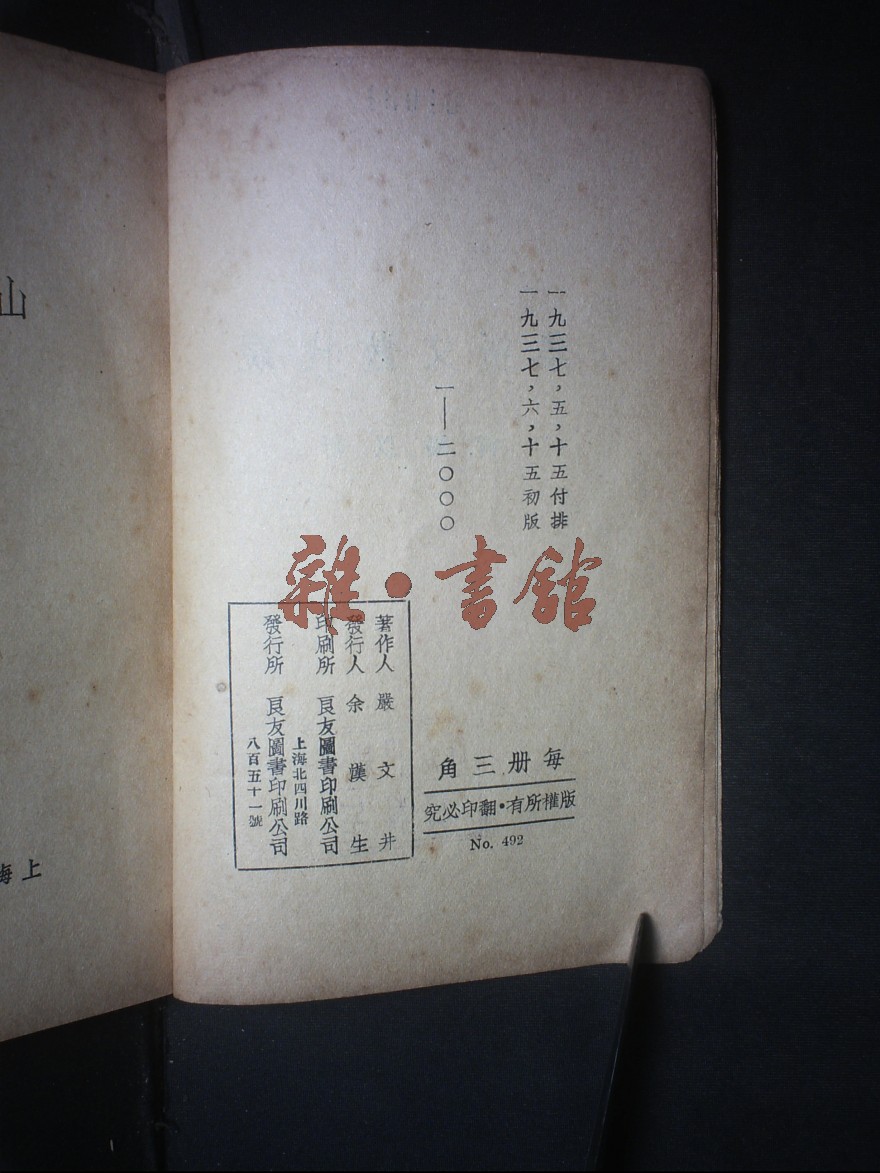 一九三七，五，十五付排
一九三七，六，十五初版
一——二〇〇〇
每册三角
版權所有·翻印必究
No. 492
著作人 嚴文井
發行人 余漢生
印刷所 良友圖書印刷公司
上海北四川路
發行所 良友圖書印刷公司
八百五十一號
雜·書館
山
上海